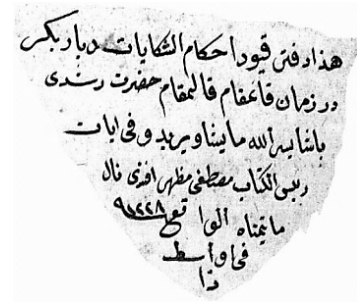 هذا دفتر قيود احكام الشكايات ديار بكر
در زمان قائمقام قائمقام حضرت رشدى
پاشا يسر الله ما يشا ويريد وفى ايات
رئيس الكتاب مصطفى مظهر افندى نال
ما يتمناه الوا
فى اواسط